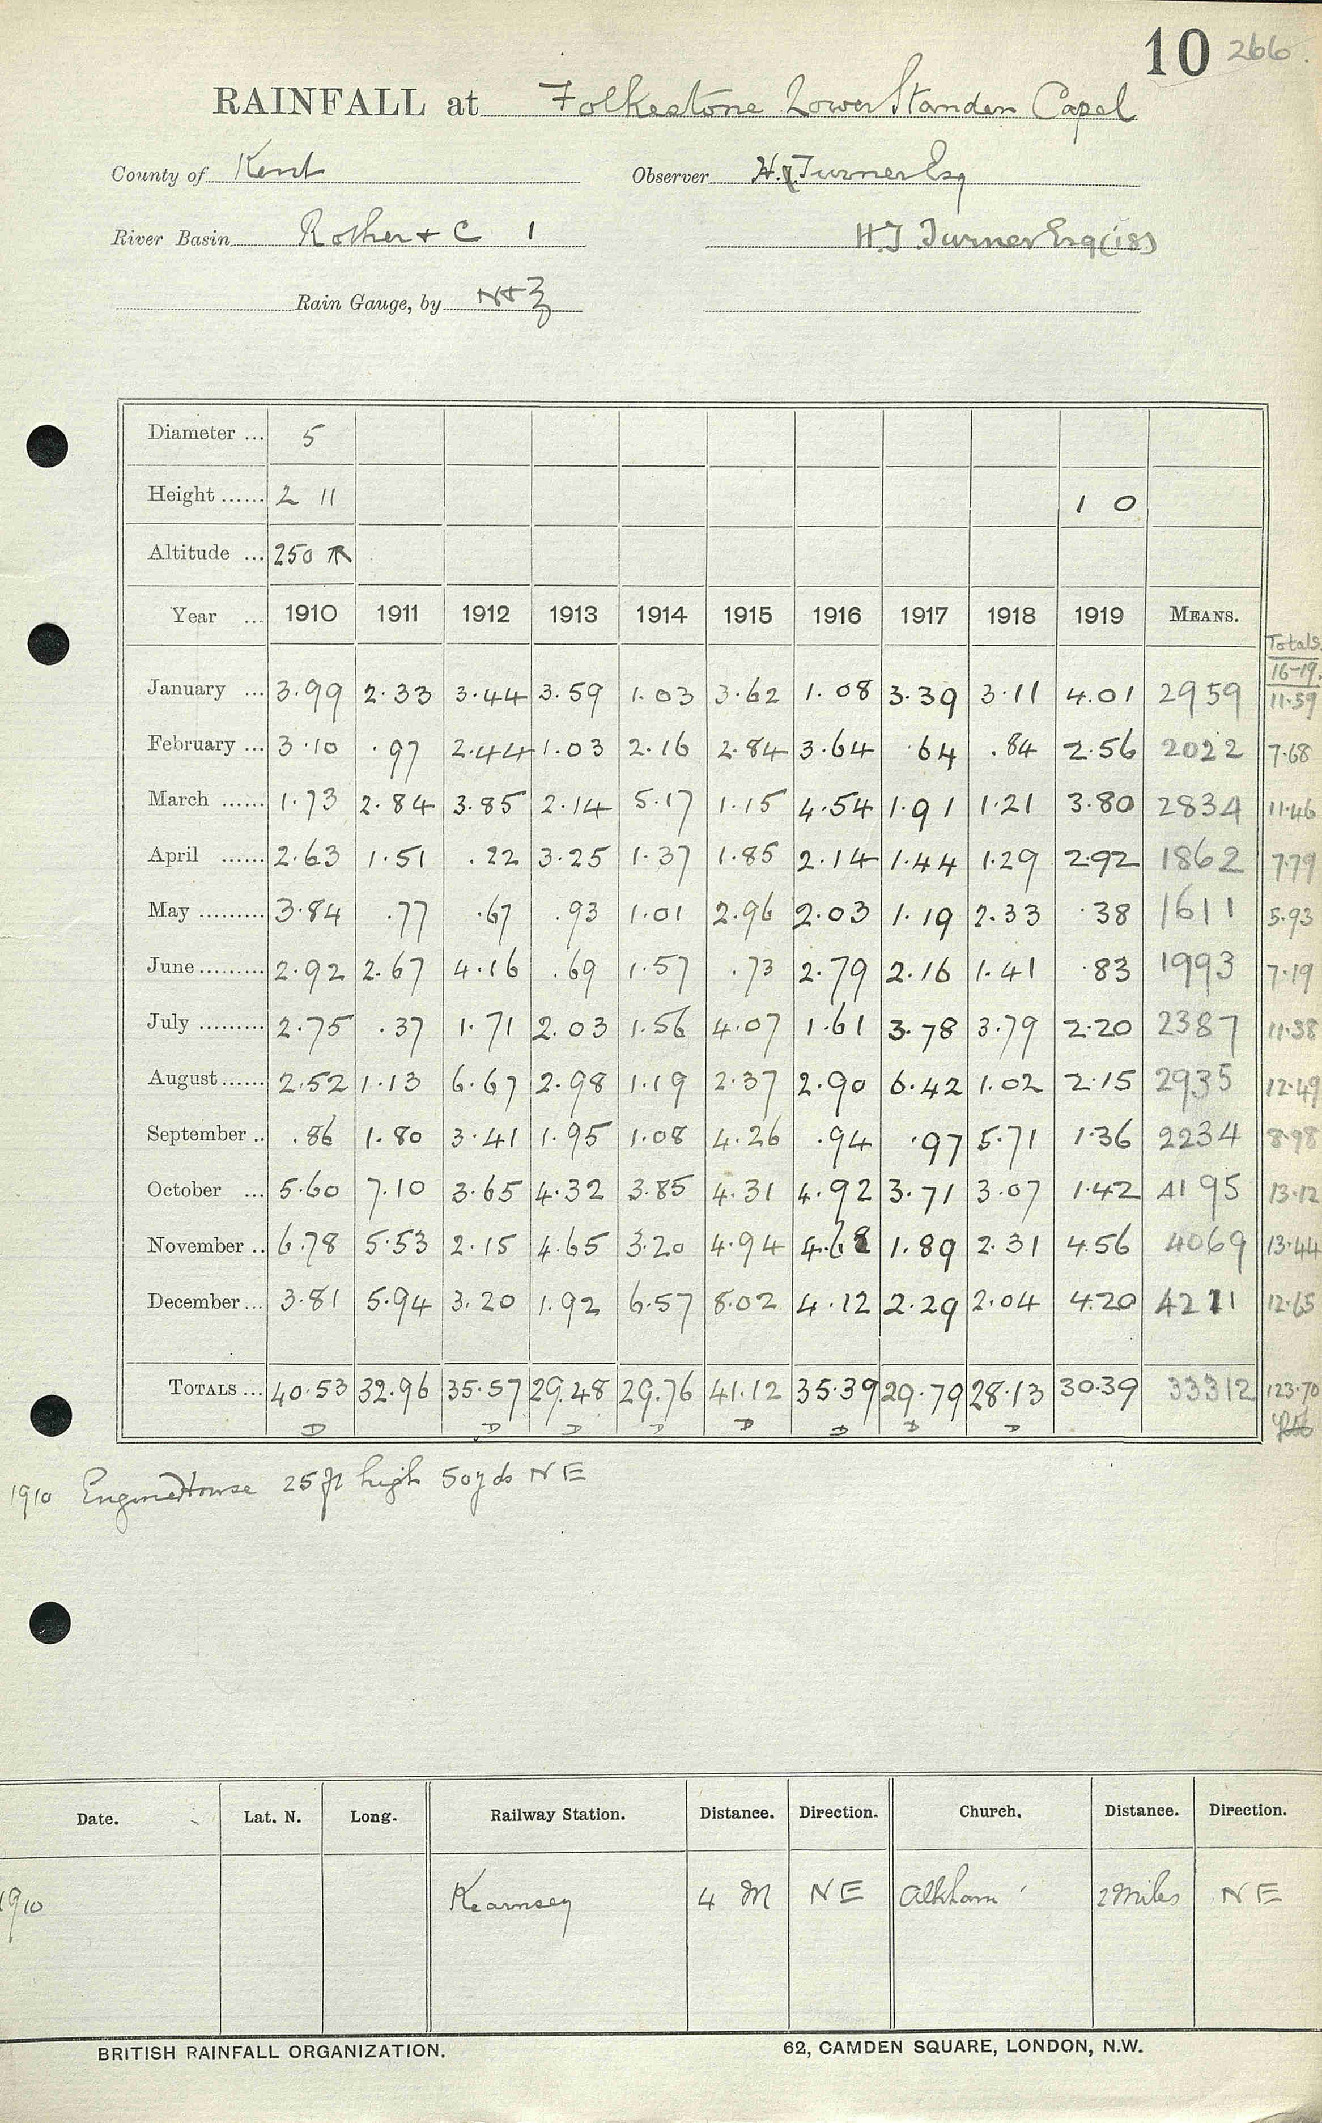 10 266.
RAINFALL at Folkestone Lower Standen Capel
County of Kent Observer H. Turner Esq
River Basin Rother + C 1 H.J. Turner Esq (18)
Rain Gauge, by N+Z
Diameter ... 5
Height ...... 2 11 1 0
Altitude ... 250
Year ... 1910 1911 1912 1913 1914 1915 1916 1917 1918 1919 MEANS. Totals 16-19.
January ... 3.99 2.33 3.44 3.59 1.03 3.62 1.08 3.39 3.11 4.01 2959 11.59
February ... 3.10 .97 2.44 1.03 2.16 2.84 3.64 .64 .84 2.56 2022 7.68
March ...... 1.73 2.84 3.85 2.14 5.17 1.15 4.54 1.91 1.21 3.80 2834 11.46
April ...... 2.63 1.51 .22 3.25 1.37 1.85 2.14 1.44 1.29 2.92 1862 7.79
May ......... 3.84 .77 .67 .93 1.01 2.96 2.03 1.19 2.33 .38 1611 5.93
June ......... 2.92 2.67 4.16 .69 1.57 .73 2.79 2.16 1.41 .83 1993 7.19
July ......... 2.75 .37 1.71 2.03 1.56 4.07 1.61 3.78 3.79 2.20 2387 11.38
August ...... 2.52 1.13 6.67 2.98 1.19 2.37 2.90 6.42 1.02 2.15 2935 12.49
September .. .86 1.80 3.41 1.95 1.08 4.26 .94 .97 5.71 1.36 2234 8.98
October ... 5.60 7.10 3.65 4.32 3.85 4.31 4.92 3.71 3.07 1.42 4195 13.12
November .. 6.78 5.53 2.15 4.65 3.20 4.94 4.68 1.89 2.31 4.56 4069 13.44
December ... 3.81 5.94 3.20 1.92 6.57 8.02 4.12 2.29 2.04 4.20 4211 12.65
TOTALS ... 40.53 32.96 35.57 29.48 29.76 41.12 35.39 29.79 28.13 30.39 33312 123.70
D D D D D D D D
1910 Engine House 25 ft high 50 yds NE
Date. Lat. N. Long. Railway Station. Distance. Direction. Church. Distance. Direction.
1910 Kearnsey 4 M NE Alkham 2 Miles NE
BRITISH RAINFALL ORGANIZATION. 62, CAMDEN SQUARE, LONDON, N.W.